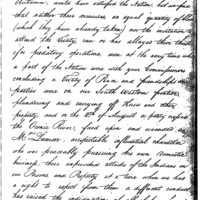 Autumn, would have satisfied the Nation, but we find
that neither these measures, an equal quantity of Goods
(which they have already taken), an invitation to
attend the Treaty, can or has alleyed their thirst
for predatory operations even at the very time when
a part of the Nation were with your Commissioners
concluding a Treaty of Peace and friendship
parties were on our South western frontier
plundering and carrying off Horses and other
property, and on the 8th of August a party before
the Oconee River, fired upon and wounded a
Mr. Damar, respectable influential character
who was peaceably pursuing his own domestic
business, these unprovoked attacks of the Indians on
our Persons and Property at a time when we has
a right to expect from them a different conduct
has raised the indignation of